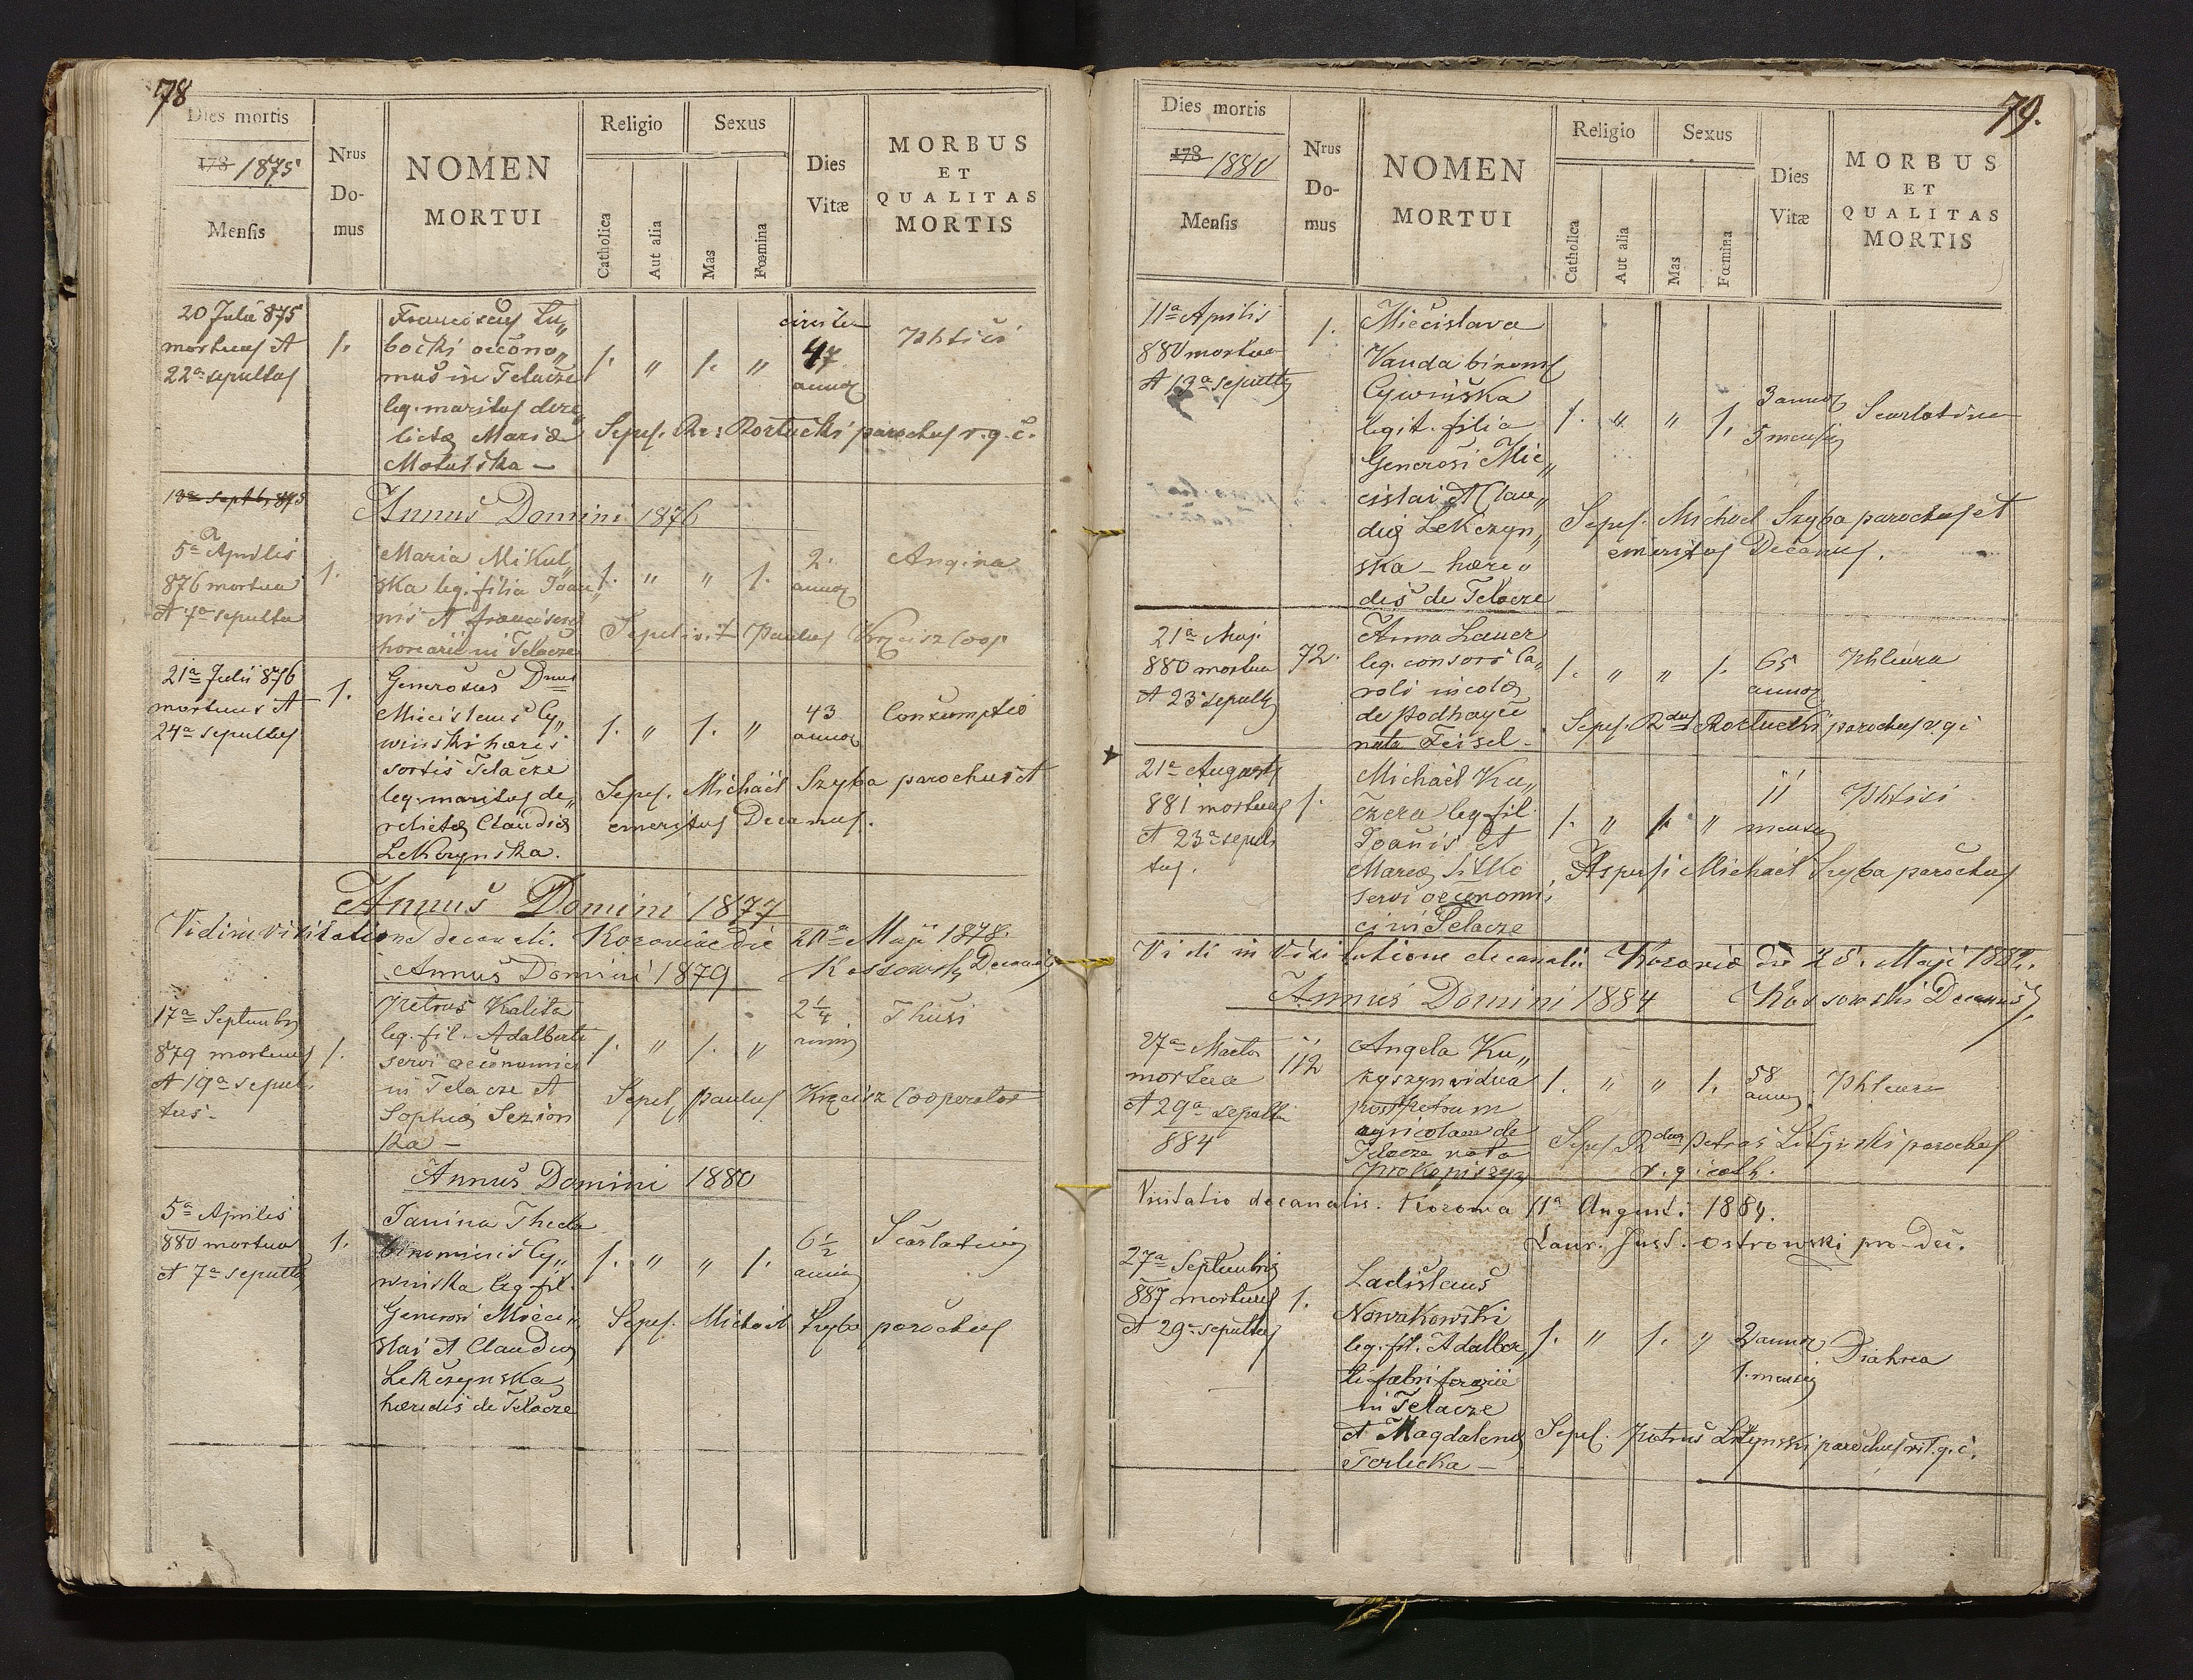 78
Dies mortis
178 1875
Menſis
Nrus
Do-
mus
NOMEN
MORTUI
Religio
Catholica
Aut alia
Sexus
Mas
Fœmina
Dies
Vitæ
MORBUS
ET
QUALITAS
MORTIS
20 Julii 875
mortuus et
22a sepultus
1.
Franciscus Lu„
bocki oecono„
mus in Telacze
leg. maritus dere„
lictæ Mariæ
1. „ 1. „
circiter
47
annor
Phtisi
Sepel. Rdus Rortucki parochus r. g. c.
18a Septbr 875
Annus Domini 1876
5a Aprilis
876 mortua
et 7a sepulta
1.
Maria Mikul„
ska leg. filia Joan„
nis et Franciscæ
in Telacze
1. „ „ 1.
2.
annor
Angina
Sepelivit Paulus Krzcisz Coop
21a Julii 876
mortuus et
24a sepultus
1.
Generosus Dnus
Miecislaus Cy„
winski hæres
sortis Telacze
leg. maritus de„
relictæ Claudiæ
Lekczynska.
1. „ 1. „
43
annor
Consumptio
Sepel. Michael Szyba parochus et
emeritus Decanus.
Annus Domini 1877
Vidi in visitatione decanali. Kozoviae die 20a Maji 1878.
Annus Domini 1879
Kossowski Decanus
17a Septembris
879 mortuus
et 19a sepul
tus.
1.
Petrus Kaleta
leg. fil. Adalberti
servi oeconomici
in Telacze et
Sophiæ Sezion
ka –
1. „ 1. „
2 1/4
Thusi
Sepel. Paulus Krzcisz Cooperator
Annus Domini 1880
5a Aprilis
880 mortua
et 7a sepulta
1.
Janina Thecla
binominis Cy„
winska leg. fil.
Generosi Miecis
slai et Claudiæ
Lekczynska
hæredis de Telacze
1. „ „ 1.
6 1/2
annor
Scarlatina
Sepel. Michael Szyba parochus
79.
Dies mortis
178 1880
Menſis
Nrus
Do-
mus
NOMEN
MORTUI
Religio
Catholica
Aut alia
Sexus
Mas
Fœmina
Dies
Vitæ
MORBUS
ET
QUALITAS
MORTIS
11a Aprilis
880 mortua
et 13a sepulta
1.
Miecislava
Vanda binom
Cywinska
legit. filia
Generosi Mie„
cislai et Clau„
diæ Lekczyn„
ska – hære„
dis de Telacze
1. „ „ 1.
3 annor
5 mensis
Scarlatina
Sepel. Michael Szyba parochus et
emeritus Decanus.
21a Maji
880 mortua
et 23 sepulta
72.
Anna Lauer
leg. consors Ca„
roli incolæ
de Podhayce
nata Teisel –
1. „ „ 1.
65
annor
Phleura
Sepel. Rdus Rortucki parochus r. g. c
21a Augusti
881 mortuus
et 23a sepul
tus.
1.
Michael Ku„
czera leg. fil.
Joanis et
Mariæ Sitko
servi oeconomi„
ci in Telacze
1. „ 1. „
11
menses
Phtisi
Aspersi Michael Szyba parochus
Vidi in Visitatione decanali Kozoviæ die 25. Maji 1882.
Annus Domini 1884
Kossowski Decanus
27a Martii
mortua
et 29a sepulta
884
112
Angela Ku„
zyszyn vidua
post Petrum
agricolam de
Telacze nata
Prokopiszyn
1. „ „ 1.
58
annor
Phleura
Sepel. Rdus Petrus Litynski parochus
r. g. cath.
Visitatio decanalis. Kozowa 11a Augusti 1884.
Laur. Just. Ostrowski pro-dec.
27a Septembris
887 mortuus
et 29a sepultus
1.
Ladislaus
Nowakowski
leg. fil. Adalber„
ti fabri ferarii
in Telacze
et Magdalenæ
Terlicka –
1. „ 1. „
2 annor
1. mensis
Diahrea
Sepel. Petrus Litynski parochus rit. g. c.